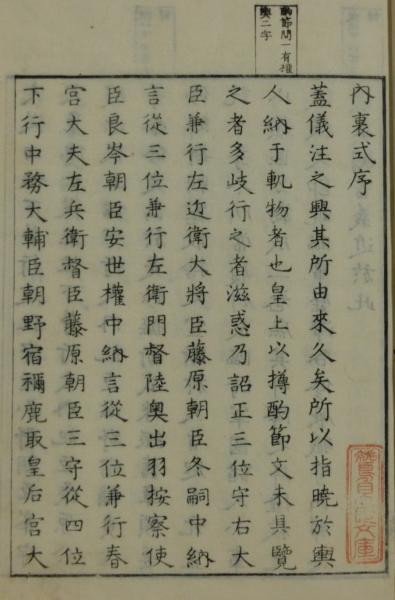 酌節間一有
與二字
內裏式序
蓋儀注之興其所由來久矣所以指曉於輿
人納于軌物者也皇上以撙酌節文未具覽
之者多岐行之者滋惑乃詔正三位守右大
臣兼行左近衛大將臣藤原朝臣冬嗣中納
言從三位兼行左衛門督陸奧出羽按察使
臣良岑朝臣安世權中納言從三位兼行春
宮大夫左兵衛督臣藤原朝臣三守從四位
下行中務大輔臣朝野宿禰鹿取皇后宮大